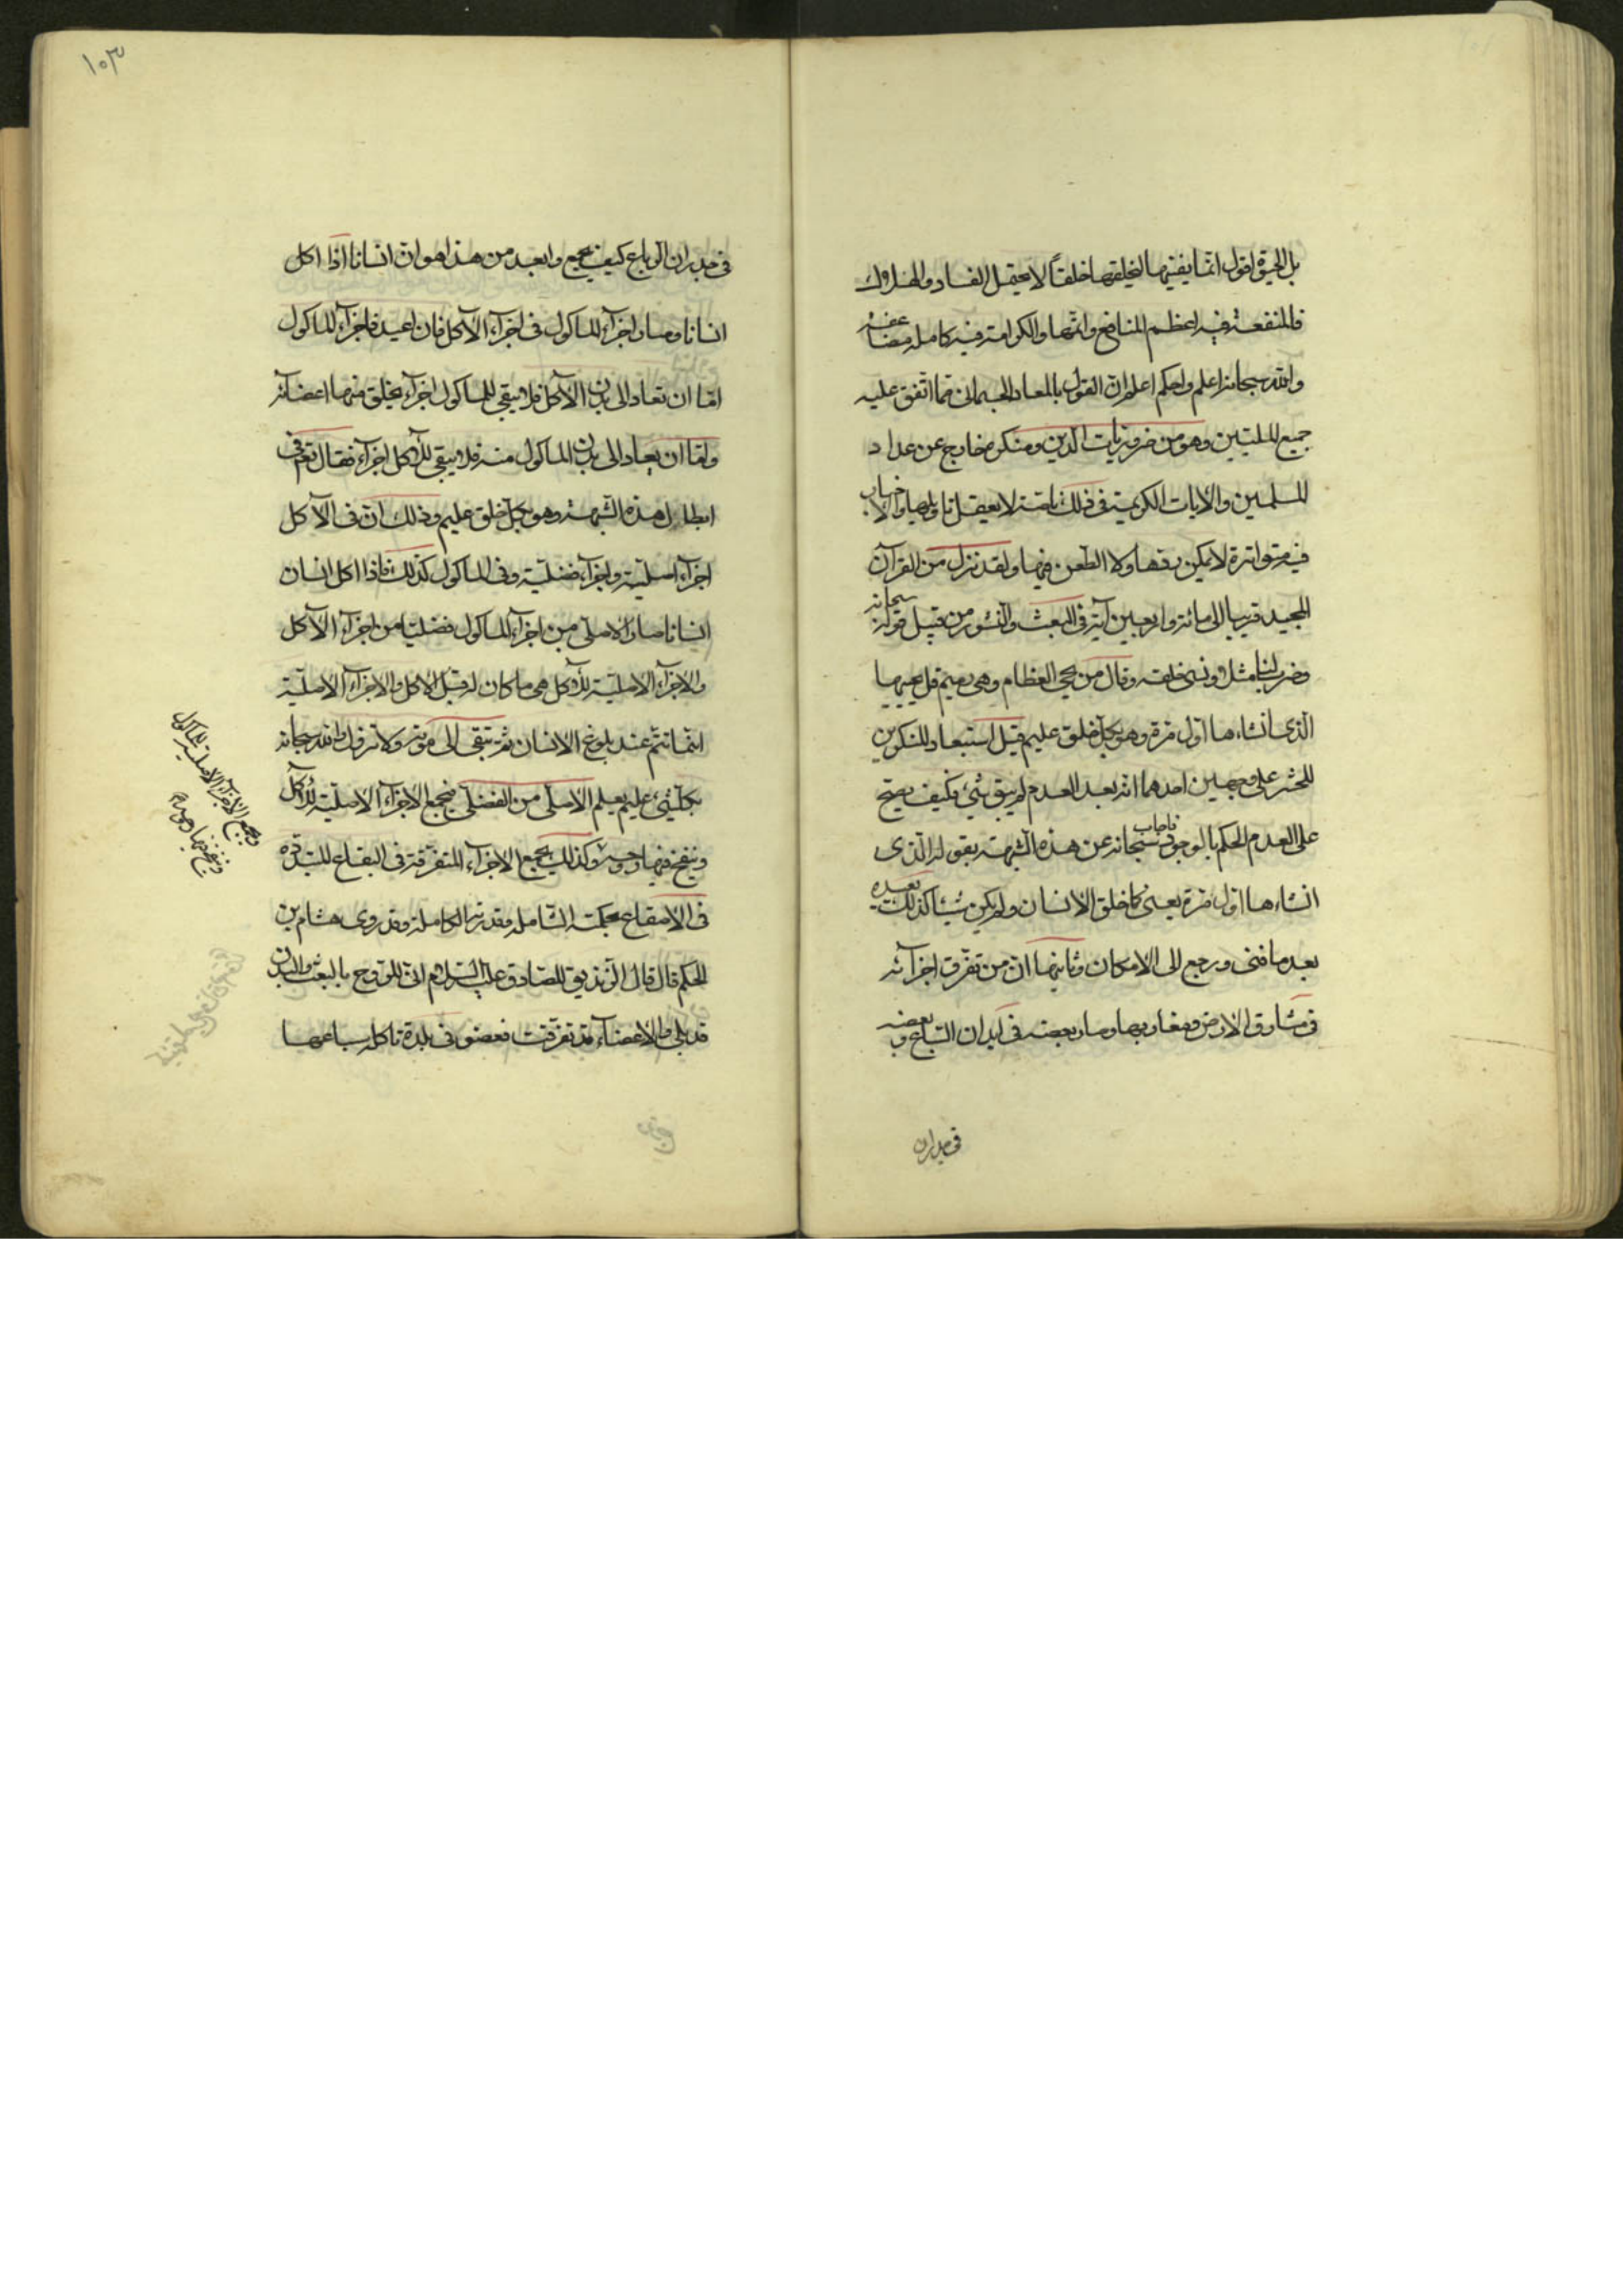 بل الحيوة اقول انما يفنيها ليخلقها خلقاً لا يحتمل الفساد والهلاك
فالمنفعة فيه اعظم المنافع واتمها والكرامة فيه كاملة مضاعفة
والله سبحانه اعلم واحكم اعلم ان القول بالمعاد الجسمانى مما اتفق عليه
جميع المليين وهو من ضروريات الدين ومنكره خارج عن عداد
المسلمين والايات الكريمة فى ذلك ناصة لا يعقل تاويلها والاخبار
فيه متواترة لا يمكن ردها ولا الطعن فيها ولقد نزل من القرآن
المجيد قريبا الى مائة واربعين آية فى البعث والنشور من قبيل قوله سبحانه
وضرب لنا مثلا ونسى خلقه وقال من يحيى العظام وهى رميم قل يحييها
الذى انشاءها اول مرة وهو بكل خلق عليم قيل استبعاد المنكرين
للحشر على وجهين احدهما انه بعد العدم لم يبق شئ فكيف يصح
على العدم الحكم بالوجود فاجاب سبحانه عن هذه الشبهة بقوله الذى
انشاءها اول مرة يعنى كما خلق الانسان ولم يكن شيئا كذلك يعيده
بعد ما فنى ورجع الى الامكان وثانيها ان من تفرق اجزائه
فى مشارق الارض ومغاربها وصار بعضه فى ابدان السباع وبعضه
فى جدران
١٠٣
فى جدران الرباع كيف يجمع وابعد من هذا هو ان انسانا اذا اكل
انسانا وصار اجزآء الماكول فى اجزآء الآكل فان اعيد فاجزآء الماكول
اما ان تعاد الى بدن الآكل فلا يبقى للماكول اجزآء يخلق منها اعضائه
واما ان يعاد الى بدن الماكول منه فلا يبقى للآكل اجزآء فقال تعم فى
ابطال هذه الشبهة وهو بكل خلق عليم وذلك ان فى الآكل
اجزآء اصلية واجزآء فضلية وفى الماكول كذلك فاذا اكل انسان
انسانا صار الاصلى من اجزآء الماكول فضليا من اجزآء الآكل
والاجزآء الاصلية للآكل هى ما كان له قبل الاكل والاجزآء الاصلية
انما تتم عند بلوغ الانسان ثم تبقى الى موته ولا تزول والله سبحانه
بكل شئ عليم يعلم الاصلى من الفضلى فيجمع الاجزآء الاصلية للآكل
وينفخ فيها روحه وكذلك يجمع الاجزآء المتفرقة فى البقاع المتبددة
فى الاصقاع بحكمته الشاملة وقدرته الكاملة وقد روى هشام بن
الحكم قال قال الزنديق للصادق عليه السلام انى للروح بالبعث والبدن
قد بلى والاعضآء قد تفرقت فعضو فى بلدة تاكله سباعها
ويجمع الاجزآء الاصلية للماكول
وينفخ فيها روحه